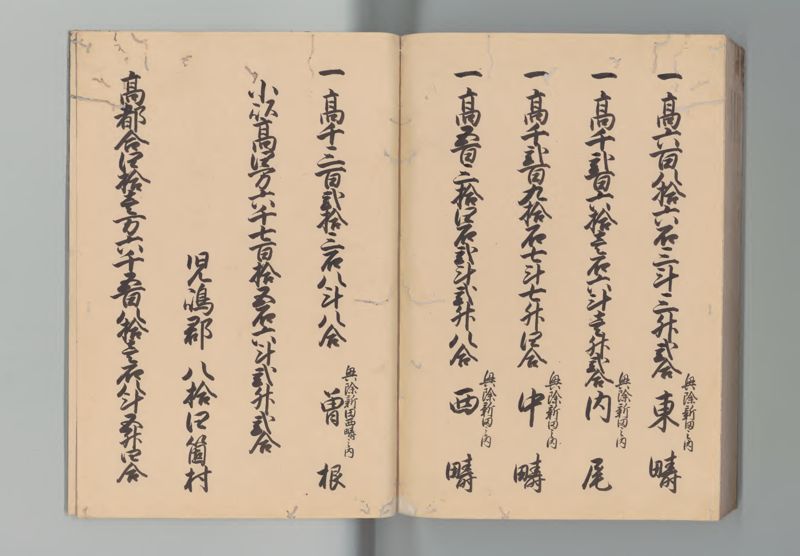 一高六百八拾六石三斗三升弐合 興除新田之内 東疇
一高千弐百六拾壱石六斗壱升弐合 興除新田之内 内尾
一高千弐百九拾石七斗七升四合 興除新田之内 中疇
一高五百三拾四石弐斗弐升八合 興除新田之内 西疇
一高千三百弐拾三石八斗八合 興除新田西疇之内 曽根
小以高四万六千七百拾五石六斗弐升弐合
児嶋郡 八拾四箇村
高都合四拾壱万六千五百八拾壱石八斗五升四合